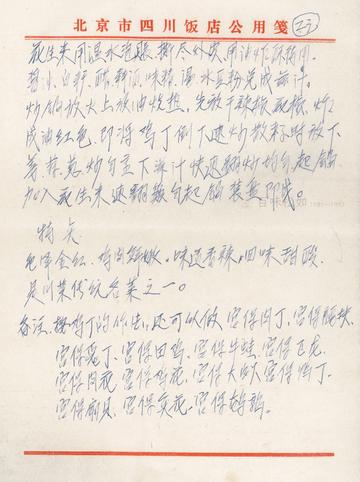 北京市四川饭店公用笺
花生米用温水泡胀,撕尽外皮用油炸酥待用。
酱油、白糖、醋、料酒、味精、湿水豆粉兑成滋汁。
炒锅放火上放油烧热,先放干辣椒、花椒,炸
成油红色,即将鸡丁倒下迅炒散籽时放下
姜、蒜、葱炒匀烹下滋汁快速翻炒均匀,起锅
加入花生米迅翻簸匀起锅装盘即成。
特点
色泽金红、鸡肉鲜嫩,味适香辣,回味甜酸
是川菜传统名菜之一。
备注、按鸡丁的作法,还可以做宫保肉丁、宫保腰块
宫保兔丁、宫保田鸡、宫保牛蛙、宫保飞龙
宫保肉花、宫保鸡花、宫保大虾、宫保鸭丁、
宫保鲜贝、宫保鱼花、宫保鹌鹑。